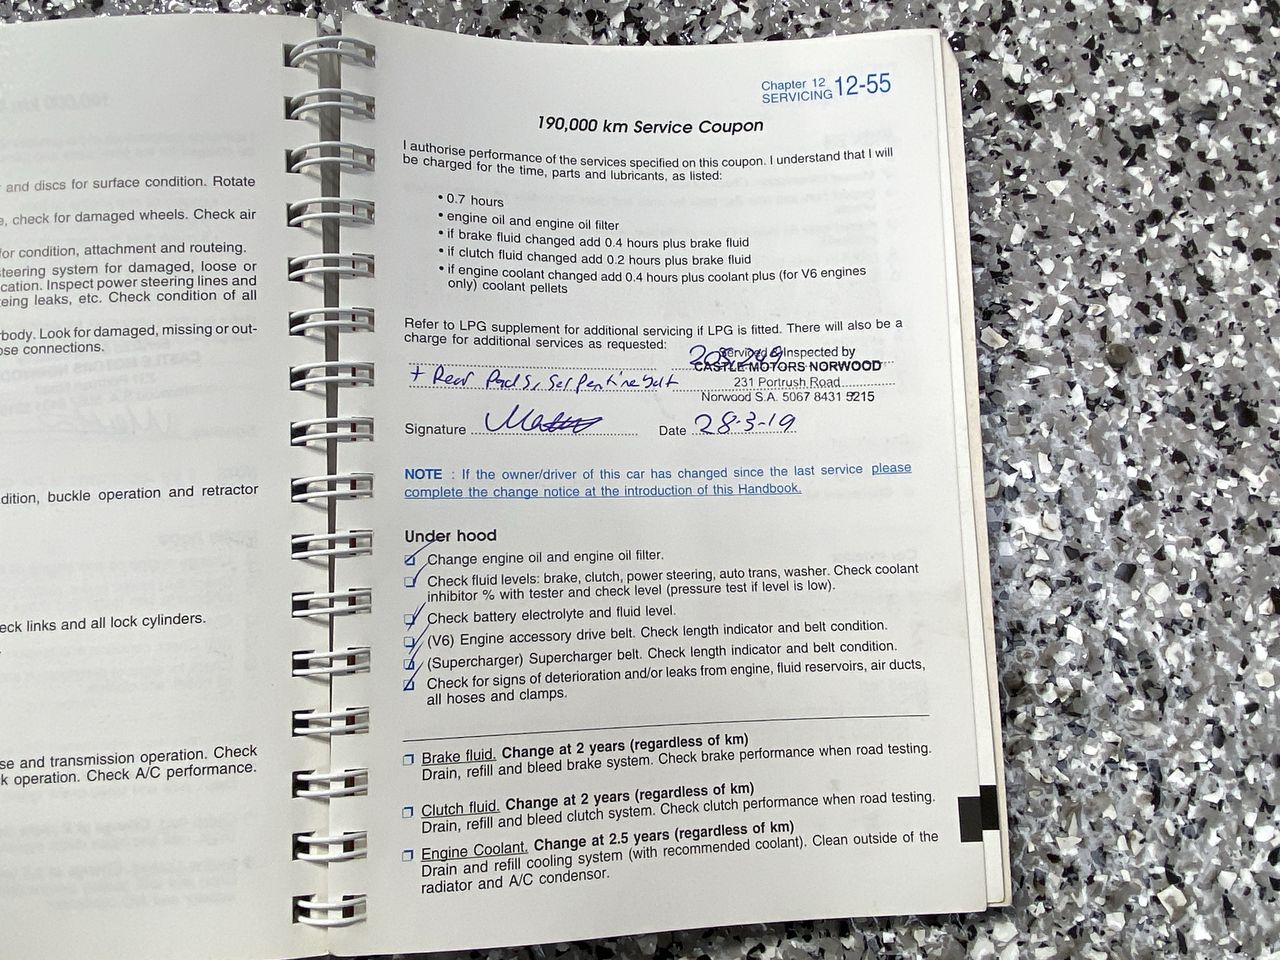 and discs for surface condition. Rotate
check for damaged wheels. Check air
for condition, attachment and routeing.
steering system for damaged, loose or
Inspect power steering lines and
leaks, etc. Check condition of all
body. Look for damaged, missing or out-
connections.
buckle operation and retractor
links and all lock cylinders.
and transmission operation. Check
operation. Check A/C performance.
Chapter 12
SERVICING 12-55
190,000 km Service Coupon
I authorise performance of the services specified on this coupon. I understand that I will
be charged for the time, parts and lubricants, as listed:
• 0.7 hours
• engine oil and engine oil filter
• if brake fluid changed add 0.4 hours plus brake fluid
• if clutch fluid changed add 0.2 hours plus brake fluid
• if engine coolant changed add 0.4 hours plus coolant plus (for V6 engines
only) coolant pellets
Refer to LPG supplement for additional servicing if LPG is fitted. There will also be a
charge for additional services as requested:
Serviced & Inspected by
CASTLE MOTORS NORWOOD
231 Portrush Road
Norwood S.A. 5067 8431 9215
+ Rear Pads, Serpentine belt
Signature
Date 28-3-19
NOTE : If the owner/driver of this car has changed since the last service please
complete the change notice at the introduction of this Handbook.
Under hood
Change engine oil and engine oil filter.
Check fluid levels: brake, clutch, power steering, auto trans, washer. Check coolant
inhibitor % with tester and check level (pressure test if level is low).
Check battery electrolyte and fluid level.
(V6) Engine accessory drive belt. Check length indicator and belt condition.
(Supercharger) Supercharger belt. Check length indicator and belt condition.
Check for signs of deterioration and/or leaks from engine, fluid reservoirs, air ducts,
all hoses and clamps.
Brake fluid. Change at 2 years (regardless of km)
Drain, refill and bleed brake system. Check brake performance when road testing.
Clutch fluid. Change at 2 years (regardless of km)
Drain, refill and bleed clutch system. Check clutch performance when road testing.
Engine Coolant. Change at 2.5 years (regardless of km)
Drain and refill cooling system (with recommended coolant). Clean outside of the
radiator and A/C condensor.